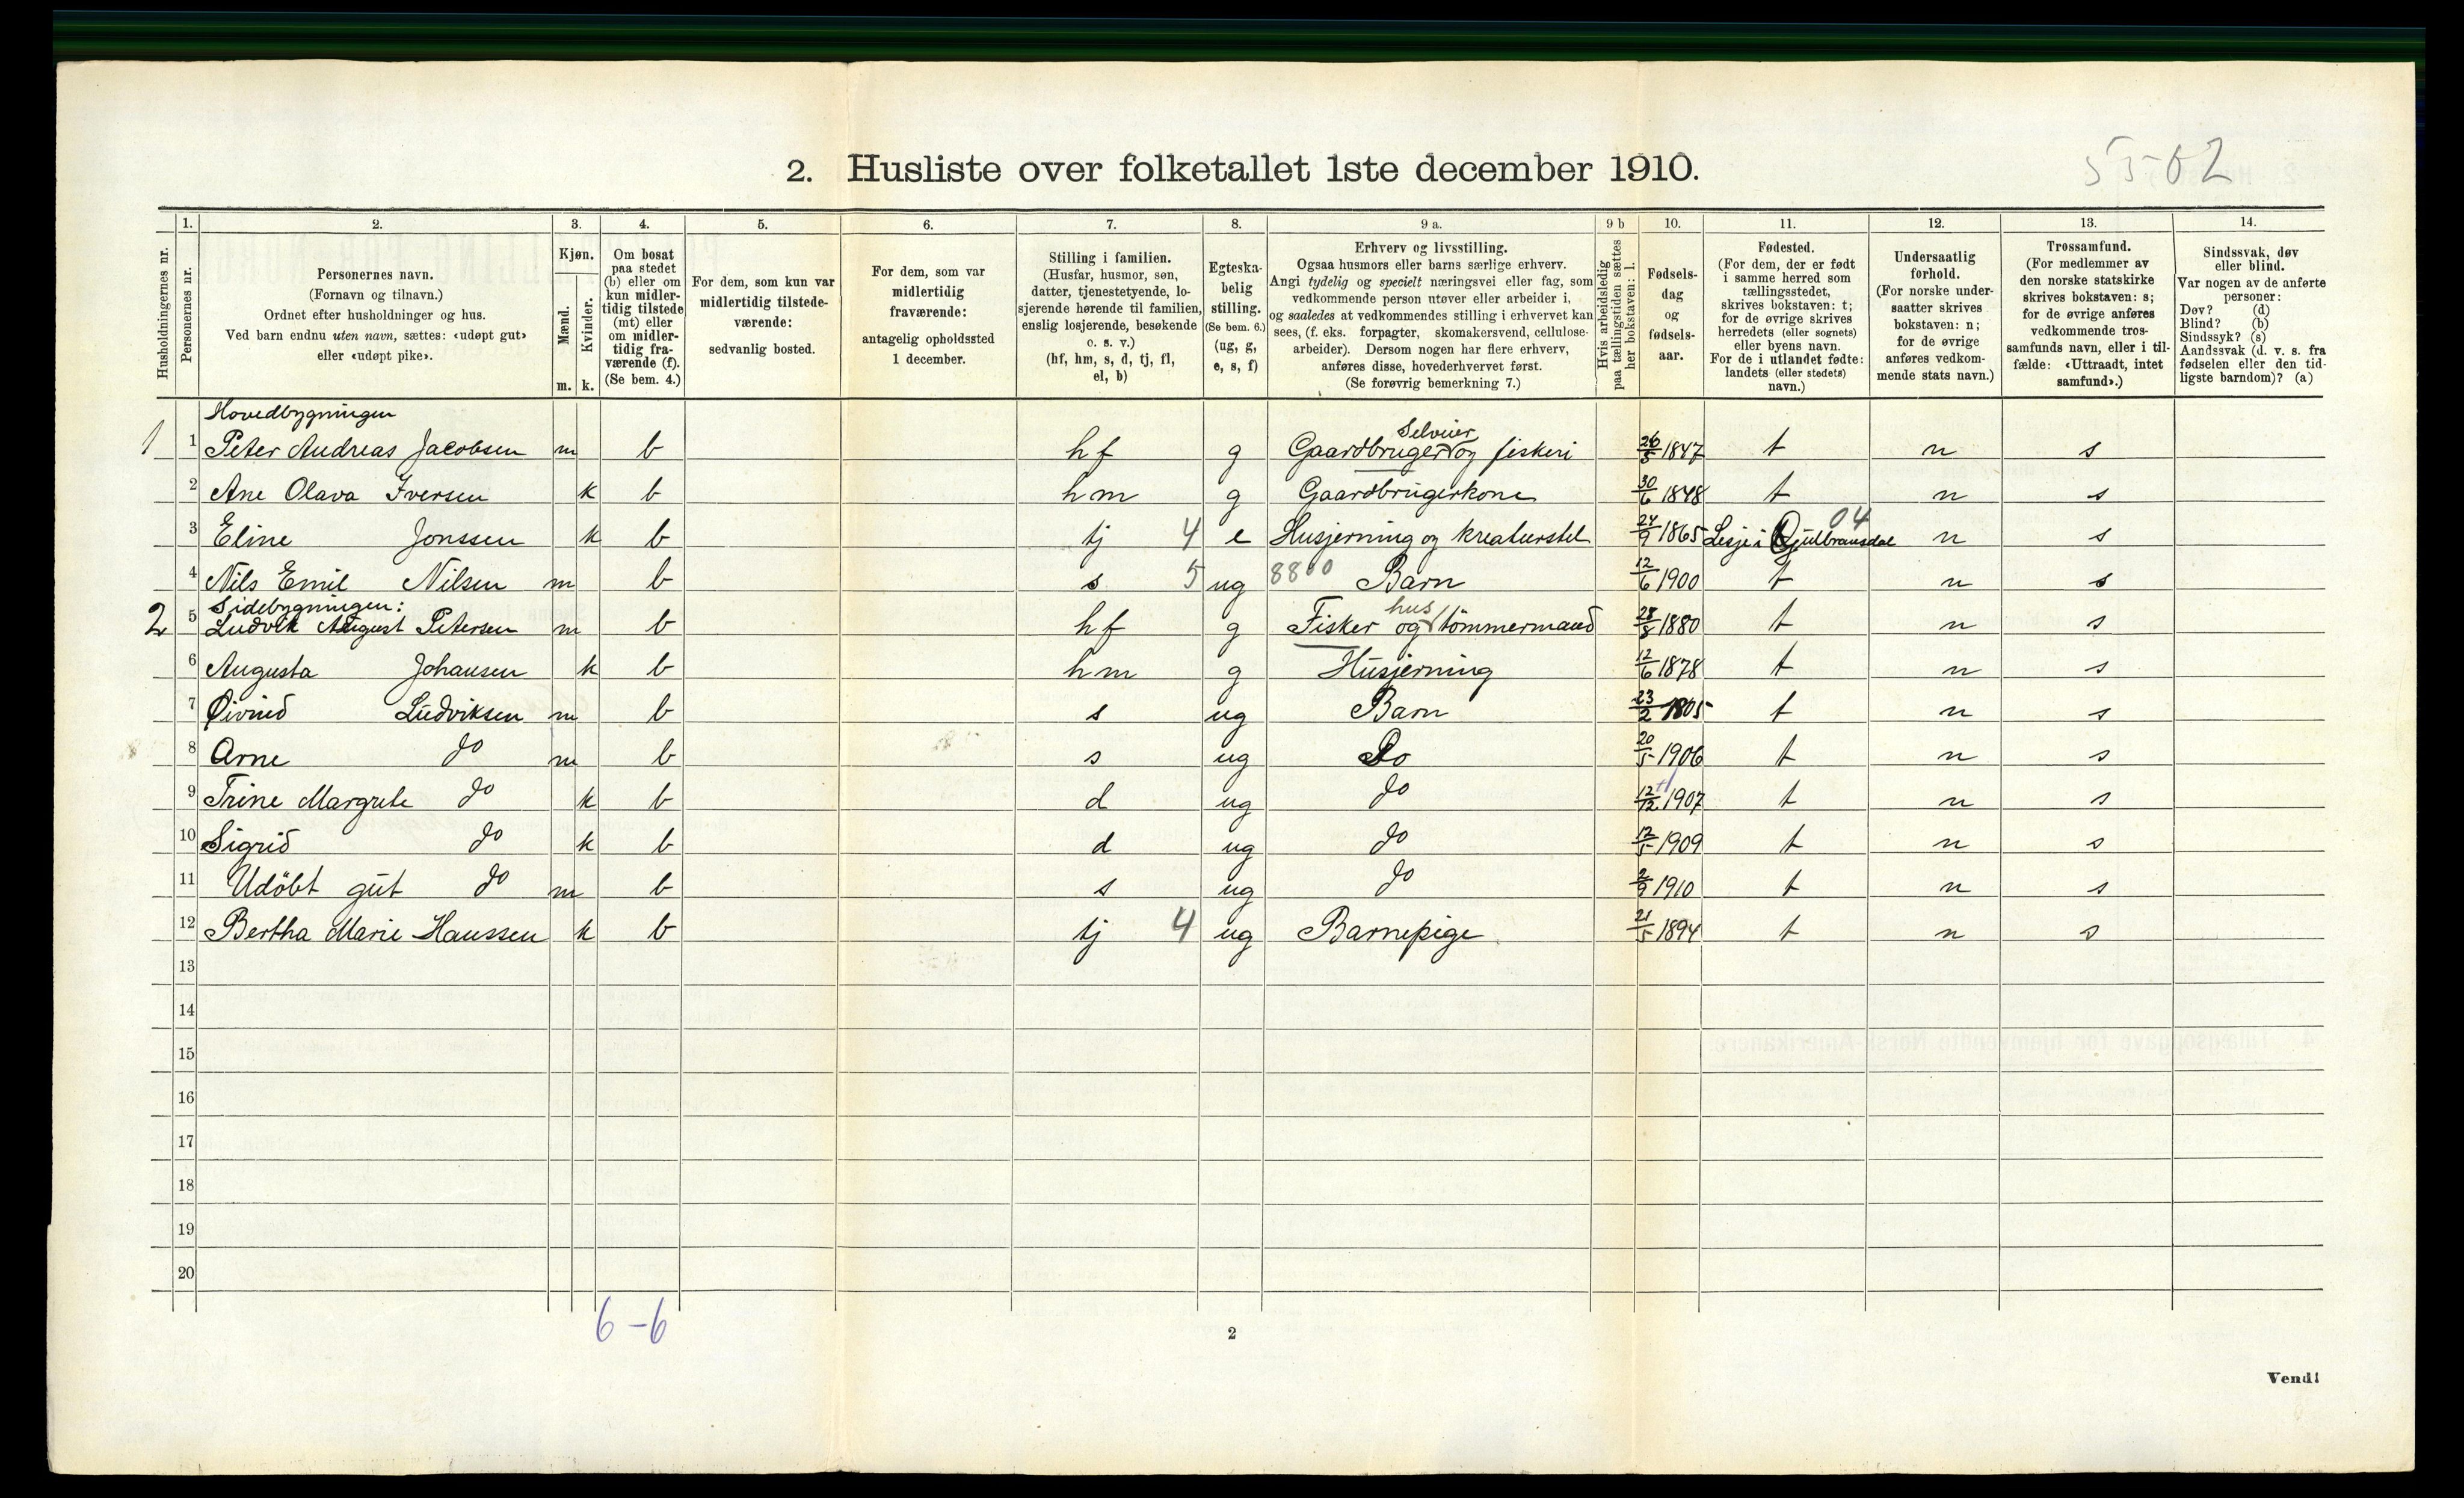 5502
2. Husliste over folketallet 1ste december 1910.
Husholdningernes nr.
1.
Personernes nr.
2.
Personernes navn.
(Fornavn og tilnavn.)
Ordnet efter husholdninger og hus.
Ved barn endnu uten navn, sættes: «udøpt gut»
eller «udøpt pike».
3.
Kjøn.
Mænd.
Kvinder.
m. k.
4.
Om bosat
paa stedet
(b) eller om
kun midler-
tidig tilstede
(mt) eller
om midler-
tidig fra-
værende (f).
(Se bem. 4.)
5.
For dem, som kun var
midlertidig tilstede-
værende:
sedvanlig bosted.
6.
For dem, som var
midlertidig
fraværende:
antagelig opholdssted
1 december.
7.
Stilling i familien.
(Husfar, husmor, søn,
datter, tjenestetyende, lo-
sjerende hørende til familien,
enslig losjerende, besøkende
o. s. v.)
(hf, hm, s, d, tj, fl,
el, b)
8.
Egteska-
belig
stilling.
(Se bem. 6.)
(ug, g,
e, s, f)
9 a.
Erhverv og livsstilling.
Ogsaa husmors eller barns særlige erhverv.
Angi tydelig og specielt næringsvei eller fag, som
vedkommende person utøver eller arbeider i,
og saaledes at vedkommendes stilling i erhvervet kan
sees, (f. eks. forpagter, skomakersvend, cellulose-
arbeider). Dersom nogen har flere erhverv,
anføres disse, hovederhvervet først.
(Se forøvrig bemerkning 7.)
9 b
Hvis arbeidsledig
paa tællingstiden sættes
her bokstaven: l.
10.
Fødsels-
dag
og
fødsels-
aar.
11.
Fødested.
(For dem, der er født
i samme herred som
tællingsstedet,
skrives bokstaven: t;
for de øvrige skrives
herredets (eller sognets)
eller byens navn.
For de i utlandet fødte:
landets (eller stedets)
navn.)
12.
Undersaatlig
forhold.
(For norske under-
saatter skrives
bokstaven: n;
for de øvrige
anføres vedkom-
mende stats navn.)
13.
Trossamfund.
(For medlemmer av
den norske statskirke
skrives bokstaven: s;
for de øvrige anføres
vedkommende tros-
samfunds navn, eller i til-
fælde: «Uttraadt, intet
samfund».)
14.
Sindssvak, døv
eller blind.
Var nogen av de anførte
personer:
Døv? (d)
Blind? (b)
Sindssyk? (s)
Aandssvak (d. v. s. fra
fødselen eller den tid-
ligste barndom)? (a)
Hovedbygningen
Selveier
1 1 Peter Andreas Jacobsen m b hf g Gaardbruger og fiskeri 26/5 1847 t n s
2 Ane Olava Iversen k b hm g Gaardbrugerkone 30/6 1848 t n s
04
3 Eline Jonssen k b tj 4 e Husjerning og kreaturstel 24/9 1865 Lesje i Gjulbransdal n s
4 Nils Emil Nilsen m b s 5 ug 8800 Barn 12/6 1900 t n s
Sidebygningen:
hus
2 5 Ludvik August Petersen m b hf g Fisker og tømmermand 28/8 1880 t n s
6 Augusta Johansen k b hm g Husjerning 12/6 1878 t n s
7 Øivind Ludviksen m b s ug Barn 23/2 1905 t n s
8 Arne do m b s ug Do 20/5 1906 t n s
9 Trine Margrete do k b d ug do 12/12 1907 t n s
10 Sigrid do k b d ug do 12/5 1909 t n s
11 Udöbt gut do m b s ug do 2/9 1910 t n s
12 Bertha Marie Hanssen k b tj 4 ug Barnepige 21/5 1894 t n s
13
14
15
16
17
18
19
20
6-6
2
Vend!